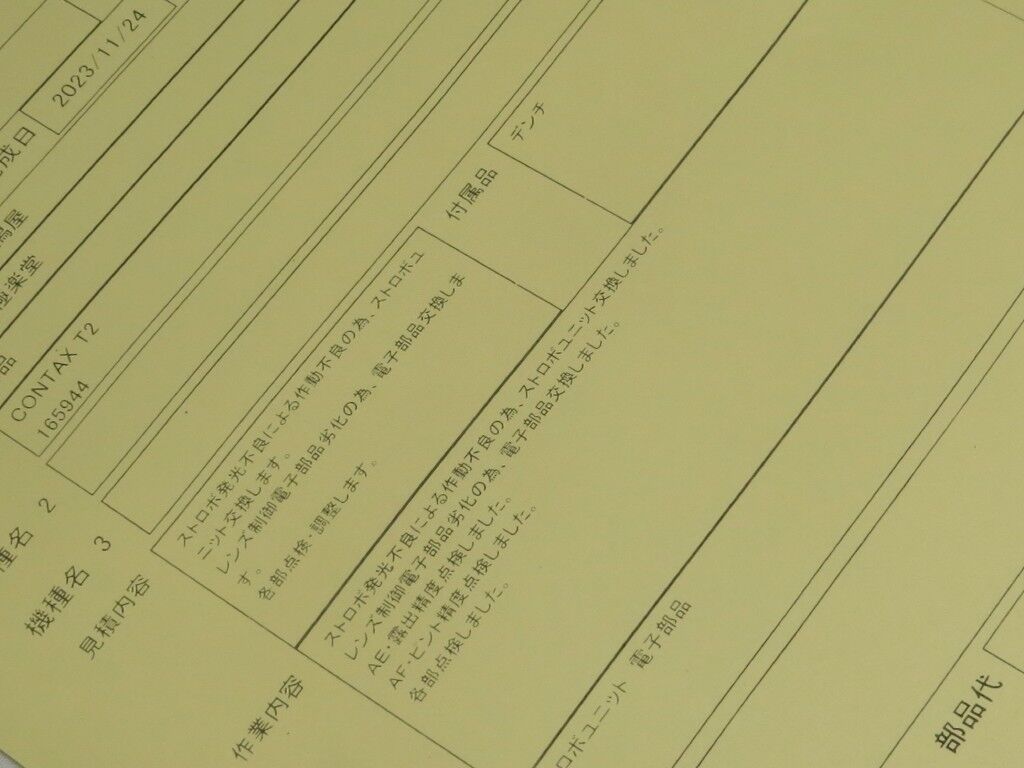 成日
2023/11/24
屋
楽堂
品
CONTAX T2
165944
種名 2
機種名 3
見積内容
ストロボ発光不良による作動不良の為、ストロボユ
ニット交換します。
レンズ制御電子部品劣化の為、電子部品交換しま
す。
各部点検・調整します。
付属品
デンチ
作業内容
ストロボ発光不良による作動不良の為、ストロボユニット交換しました。
レンズ制御電子部品劣化の為、電子部品交換しました。
AE・露出精度点検しました。
AF・ピント精度点検しました。
各部点検しました。
ロボユニット 電子部品
部品代